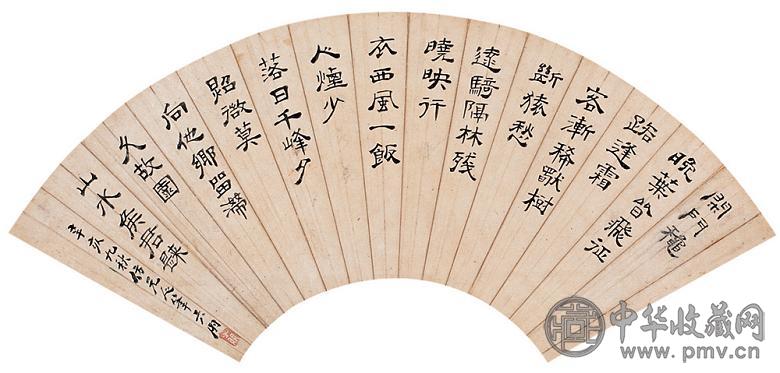 門穐
晚葉皆飛征
路逢霜
客漸稀獸樹
斷猿愁
遠騎隔林残
曉映行
衣西風一飯
人煙少
落日千峰夕
照微莫
向他鄉畱滯
久故園
山水矦君歸
辛亥九秋
中华收藏网
www.pmv.cn